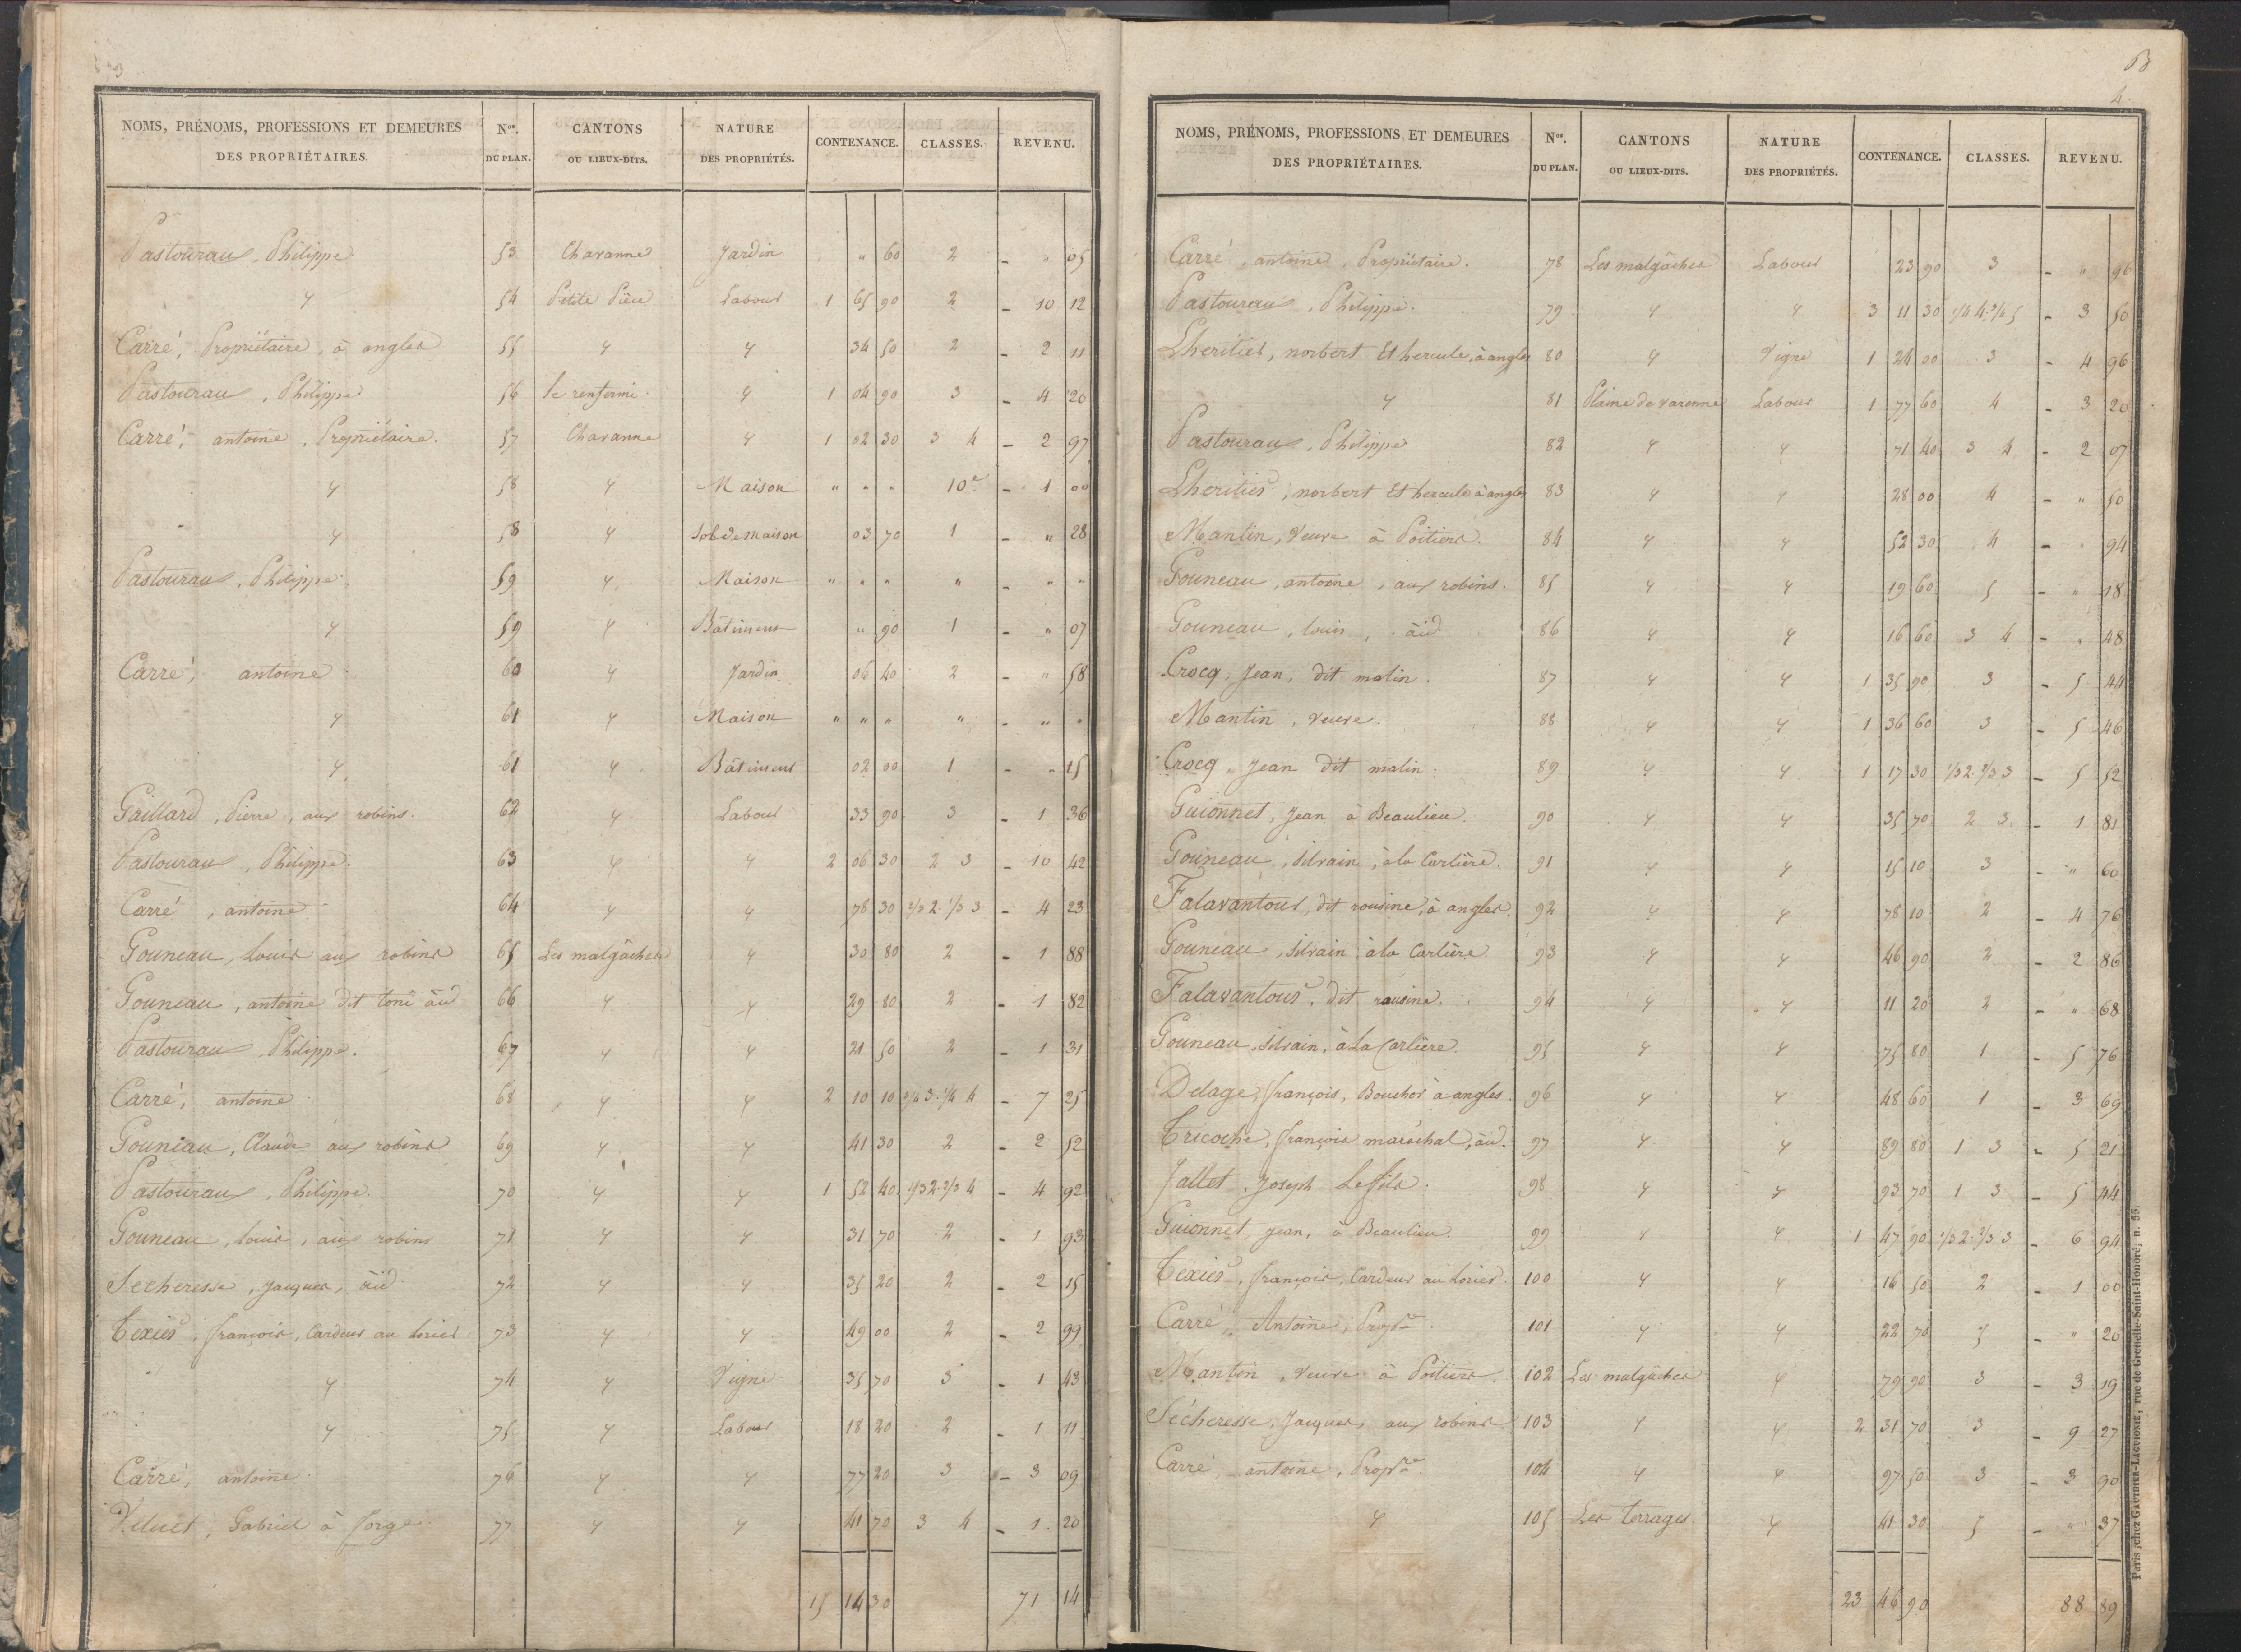 3
NOMS, PRÉNOMS, PROFESSIONS ET DEMEURES DES PROPRIÉTAIRES. Nos. DU PLAN. CANTONS OU LIEUX-DITS. NATURE DES PROPRIÉTÉS. CONTENANCE. CLASSES. REVENU.
Pastourau, Philippe 53 Chavanne Jardin " 60 2 - " 05
" 54 Petite Pièce Labour 1 65 90 2 - 10 12
Carré, Propriétaire, à angles 55 " " 34 50 2 - 2 11
Pastourau, Philippe 56 le renfermi " 1 04 90 3 - 4 20
Carré, antoine, Propriétaire. 57 Chavanne " 1 02 30 3 4 - 2 97
" 58 " Maison " " " 10e - 1 00
" 58 " Sol de maison 03 70 1 - " 28
Pastourau, Philippe. 59 " Maison " " " " - " "
" 59 " Bâtiment " 90 1 - " 07
Carré, antoine 60 " Jardin 06 40 2 - " 58
" 61 " Maison " " " " - " "
" 61 " Bâtiment 02 00 1 - " 15
Gaillard, Pierre, aux robins. 62 " Labour 33 90 3 - 1 36
Pastourau, Philippe. 63 " " 2 06 30 2 3 - 10 42
Carré, antoine 64 " " 78 30 2/3 2. 1/3 3 - 4 23
Gouneau, Louis aux robins 65 Les malgâches " 30 80 2 - 1 88
Gouneau, antoine dit toni aud 66 " " 29 80 2 - 1 82
Pastourau Philippe. 67 " " 21 50 2 - 1 31
Carré, antoine 68 " " 2 10 10 3/4 3. 1/4 4 - 7 25
Gouneau, Claude aux robins 69 " " 41 30 2 - 2 52
Pastourau, Philippe. 70 " " 1 52 40 1/3 2. 2/3 4 - 4 92
Gouneau, Louis, aux robins 71 " " 31 70 2 - 1 93
Secheresse, Jacques, aud 72 " " 35 20 2 - 2 15
Texier, françois, Cardeur au loriers 73 " " 49 00 2 - 2 99
" 74 " Vigne 35 70 3 - 1 43
" 75 " Labour 18 20 2 - 1 11
Carré, antoine. 76 " " 77 20 3 - 3 09
Gabriel à forge 77 " " 41 70 3 4 - 1 20
15 14 30 71 14
4.
NOMS, PRÉNOMS, PROFESSIONS ET DEMEURES DES PROPRIÉTAIRES. Nos. DU PLAN. CANTONS OU LIEUX-DITS. NATURE DES PROPRIÉTÉS. CONTENANCE. CLASSES. REVENU.
Carré, antoine, Propriétaire. 78 Les malgâches Labour 23 90 3 - " 96
Pastourau, Philippe. 79 " " 3 11 30 1/4 4. 3/4 5 - 3 50
Lheritier, norbert Et hercule, à angles 80 " Vigne 1 24 00 3 - 4 96
" 81 Plaine de varenne Labour 1 77 60 4 - 3 20
Pastourau, Philippe 82 " " 71 40 3 4 - 2 07
Lheritier, norbert Et hercule à angles 83 " " 28 00 4 - " 50
Mantin, Veuve à Poitiers. 84 " " 52 30 4 - " 94
Gouneau, antoine, aux robins. 85 " " 19 60 5 - " 18
Gouneau, louis, aud 86 " " 16 60 3 4 - " 48
Crocq, Jean, dit malin. 87 " " 1 35 90 3 - 5 44
Mantin, veuve. 88 " " 1 36 60 3 - 5 46
Crocq, Jean dit malin. 89 " " 1 17 30 1/3 2. 2/3 3 - 5 52
Guionnet, Jean à Beaulieu. 90 " " 35 70 2 3 - 1 81
Gouneau, silvain, à la Carlière. 91 " " 15 10 3 - " 60
Falavantour, dit rousine, à angles. 92 " " 78 10 2 - 4 76
Gouneau, silvain à la Carlière. 93 " " 46 90 2 - 2 86
Falavantour, dit rousine. 94 " " 11 20 2 - " 68
Gouneau, silvain, à la Carlière. 95 " " 75 80 1 - 5 76
Delage, françois, Boucher à angles. 96 " " 48 60 1 - 3 69
Tricoche, françois maréchal, aud. 97 " " 89 80 1 3 - 5 21
Jallet, Joseph Le fils. 98 " " 93 70 1 3 - 5 44
Guionnet, jean, à Beaulieu. 99 " " 1 47 90 1/3 2. 2/3 3 - 6 94
Texier, françois, Cardeur au loriers. 100 " " 16 50 2 - 1 00
Carré, Antoine, Propre 101 " " 22 70 5 - " 20
Mantin, veuve à Poitiers. 102 Les malgâches " 79 90 3 - 3 19
Sécheresse, Jacques, aux robins 103 " " 2 31 70 3 - 9 27
Carré antoine, Propre. 104 " " 97 50 3 - 3 90
" 105 Les terrages. " 41 30 5 - " 37
23 46 90 88 89
Paris, chez GAUTHIER-LAGUIONIE, rue de Grenelle-Saint-Honoré, n. 55.